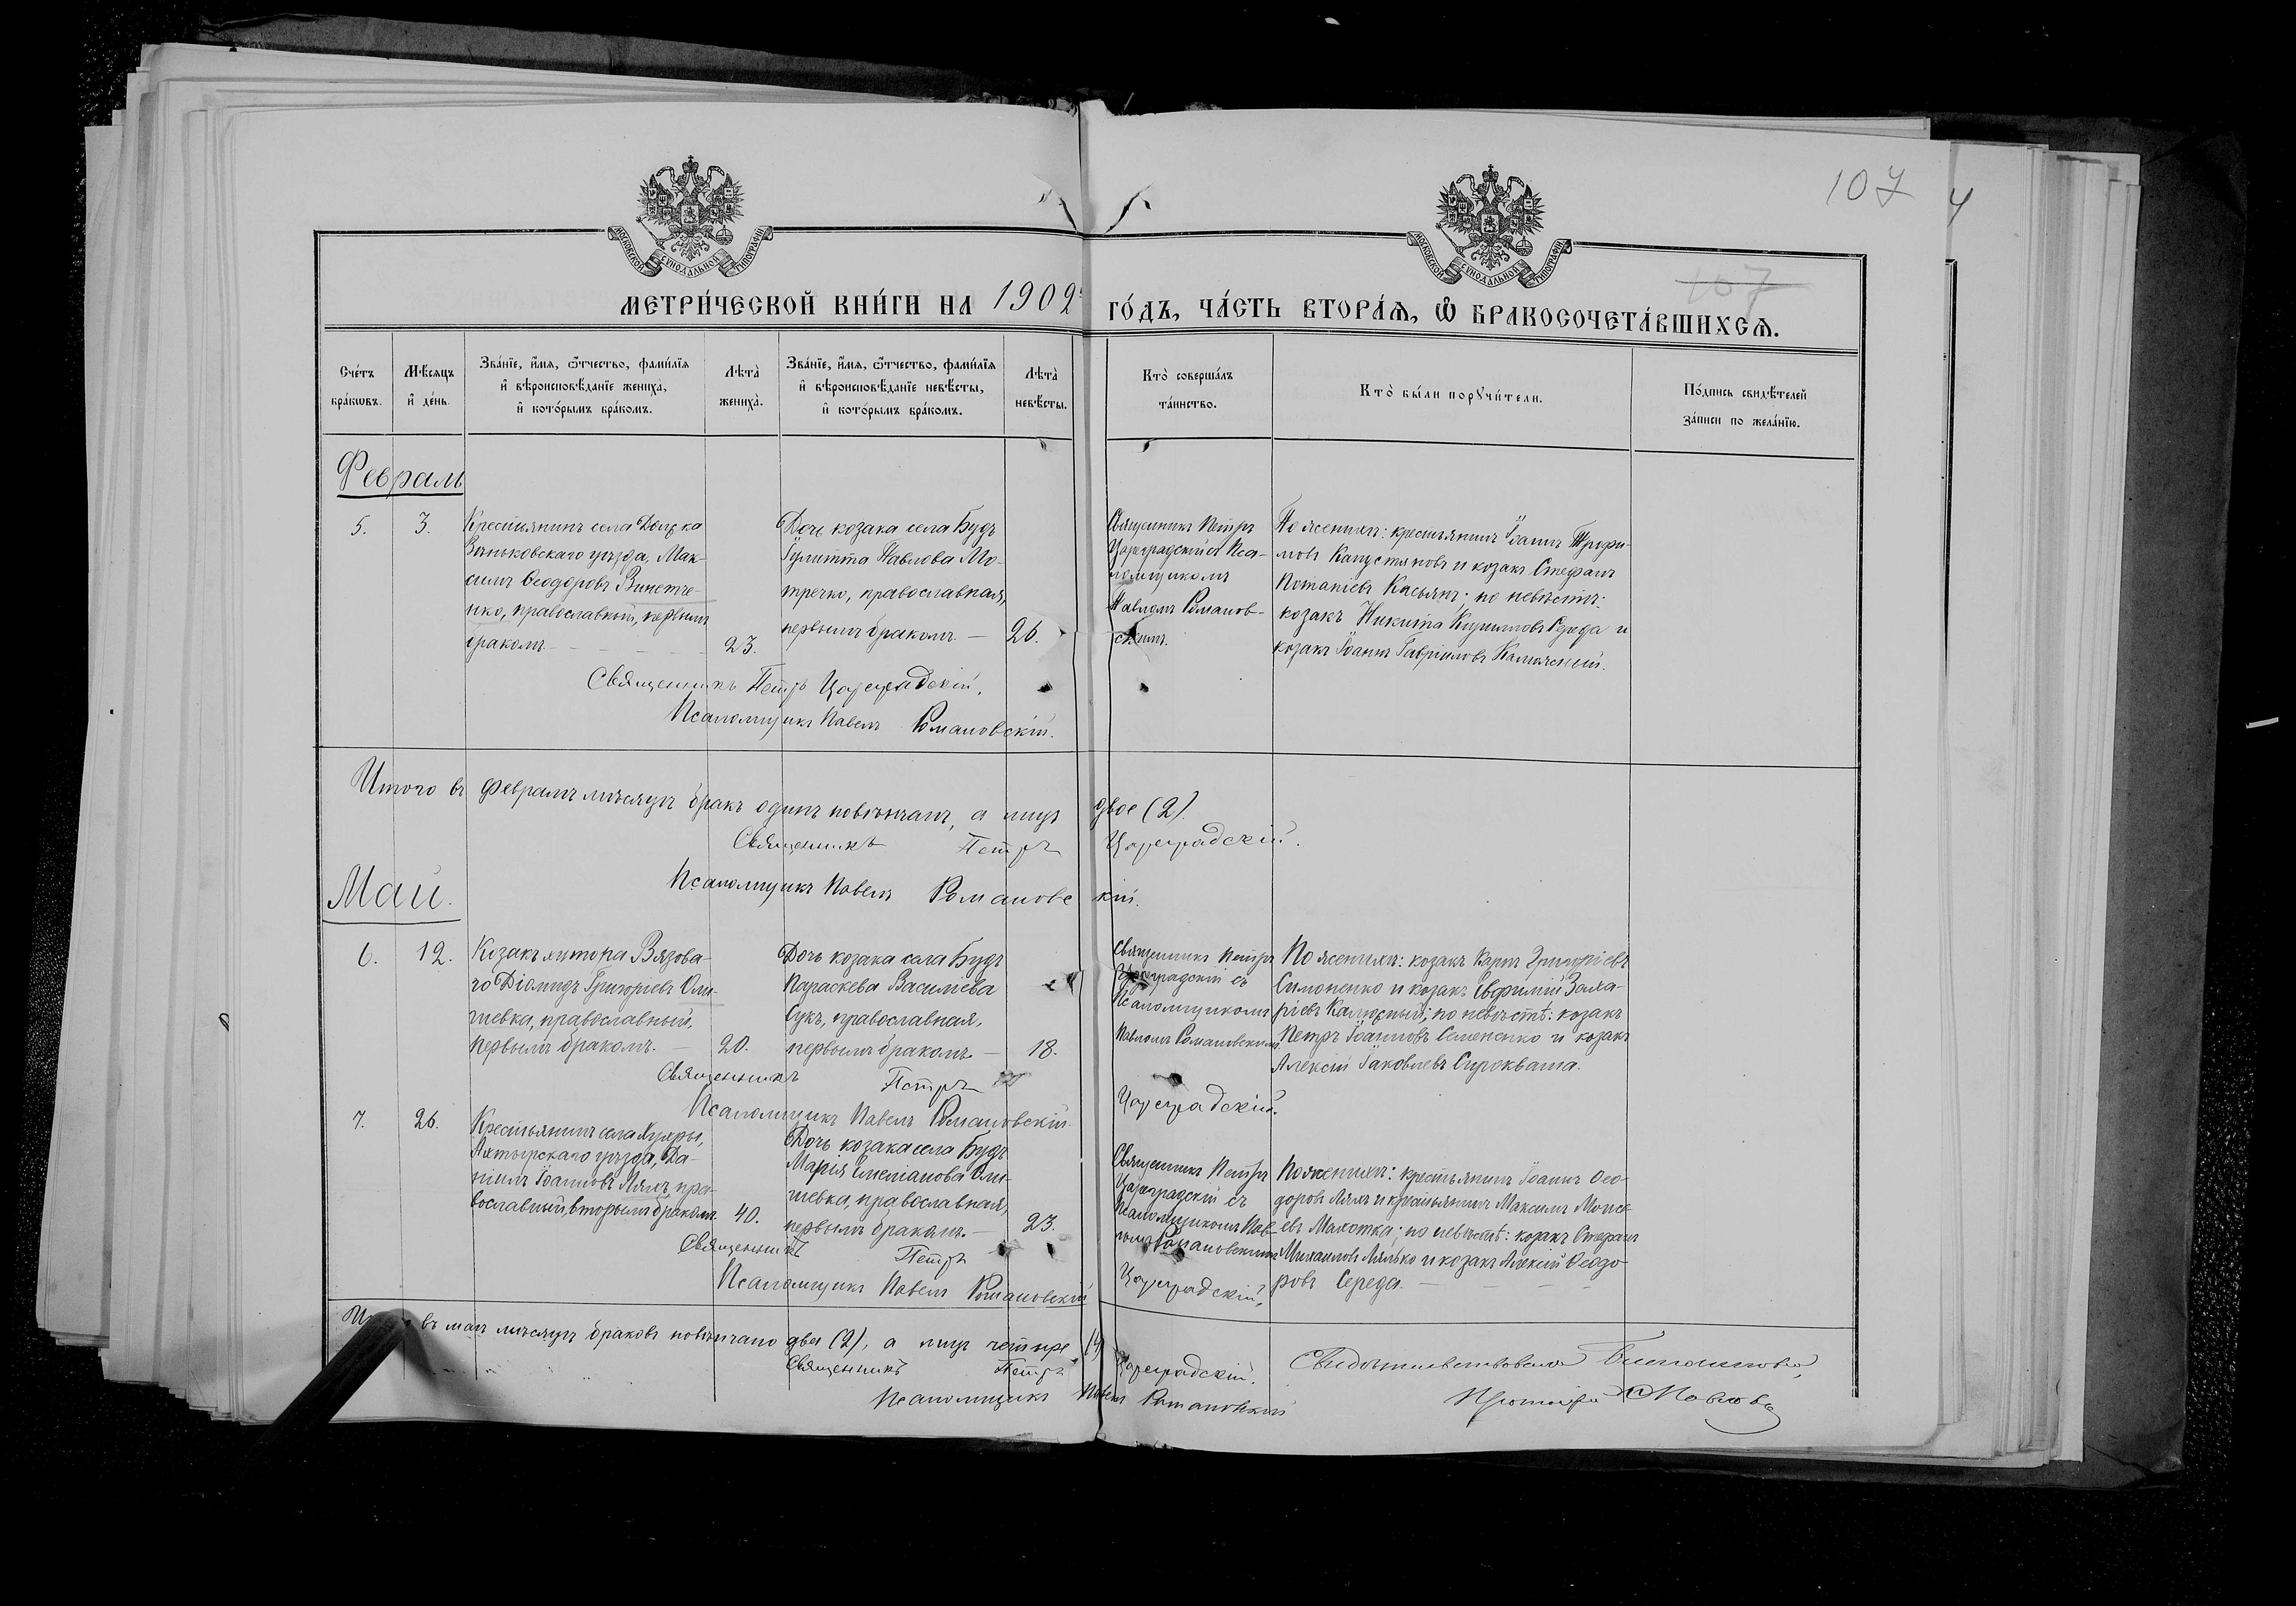 107
4
107
МОСКОВСКОЙ СУНОДАЛЬНОЙ ТИПОГРАФІИ
МОСКОВСКОЙ СУНОДАЛЬНОЙ ТИПОГРАФІИ
МЕТРИ́ЧЕСКОЙ КНИ́ГИ НА 1902 ГО́ДЪ, ЧА́СТЬ ВТОРА́Ѧ, Ѽ БРАКОСОЧЕТА́ВШИХСѦ.
Сче́тъ
бра́кѡвъ.
Мѣ́сяцъ
и҆ де́нь.
Зва́нїе, и҆́мя, ѻ҆́тчество, фами́лїя
и҆ вѣроисповѣ́данїе жениха̀,
и҆ кото́рымъ бра́комъ.
Лѣта̀
жениха̀.
Зва́нїе, и҆́мя, ѻ҆́тчество, фами́лїя
и҆ вѣроисповѣ́данїе невѣ́сты,
и҆ кото́рымъ бра́комъ.
Лѣта̀
невѣ́сты.
Кто̀ соверша́лъ
та́инство.
Кто̀ бы́ли порꙋчи́тели.
По́дпись свидѣ́телей
за́писи по жела́нїю.
Февраль
5.
3.
Крестьянинъ села Должка
Зиньковскаго уѣзда, Мак-
симъ Ѳеодоровъ Винниче-
нко, православный, первымъ
бракомъ - - - - -
23.
Дочь козака села Будъ
Іулитта Павлова Мо-
тречко, православная,
первымъ бракомъ. —
26.
Священникъ Петръ
Цареградскій съ Пса-
ломщикомъ
Павломъ Романов-
скимъ.
По женихѣ: крестьянинъ Іоаннъ Трофи-
мовъ Капустяновъ и козакъ Стефанъ
Потапіевъ Касьянъ; по невѣстѣ:
козакъ Никита Кирилловъ Середа и
козакъ Іоаннъ Гавріиловъ Калюжный.
Священникъ Петръ Цареградскій.
Псаломщикъ Павелъ Романовскій.
Итого въ Февралѣ мѣсяцѣ бракъ одинъ повѣнчанъ, а лицъ двое (2).
Священникъ Петръ Цареградскій.
Псаломщикъ Павелъ Романовскій.
Май.
6.
12.
Козакъ хутора Вязова-
го Діомидъ Григоріевъ Оли-
шевка, православный,
первымъ бракомъ. —
20.
Дочь козака села Будъ
Параскева Василіева
Сукъ, православная,
первымъ бракомъ —
18.
Священникъ Петръ
Цареградскій съ
Псаломщикомъ
Павломъ Романовскимъ.
По женихѣ: козакъ Карпъ Григоріевъ
Симоненко и козакъ Евфимій Заха-
ріевъ Калюжный; по невѣстѣ: козакъ
Петръ Іоанновъ Семененко и козакъ
Алексій Іаковлевъ Сыроквашa.
Священникъ Петръ Цареградскій.
Псаломщикъ Павелъ Романовскій.
7.
26.
Крестьянинъ села Хухры,
Ахтырскаго уѣзда, Да-
ніилъ Іоанновъ Ляхъ, пра-
вославный, вторымъ бракомъ.
40.
Дочь козака села Будъ
Марія Емеліанова Оли-
шевка, православная,
первымъ бракомъ. —
23.
Священникъ Петръ
Цареградскій съ
Псаломщикомъ Пав-
ломъ Романовскимъ
По женихѣ: крестьянинъ Іоаннъ Ѳео-
доровъ Ляхъ и крестьянинъ Максимъ Моисе-
евъ Махотка; по невѣстѣ: козакъ Стефанъ
Михаиловъ Лялько и козакъ Алексій Ѳеодо-
ровъ Середа. — — —
Священникъ Петръ Цареградскій.
Псаломщикъ Павелъ Романовскій
въ маѣ мѣсяцѣ браковъ повѣнчано два (2), а лицъ четыре (4)
Священникъ Петръ Цареградскій.
Псаломщикъ Павелъ Романовскій
Протоіерей